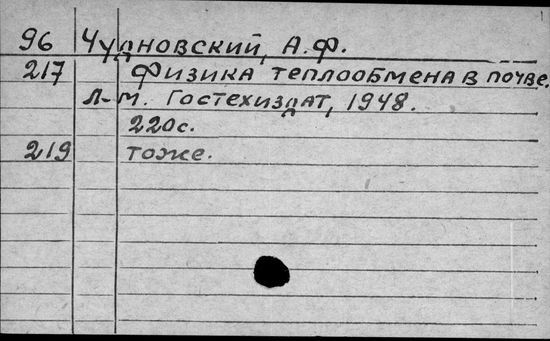 96 Чудновский, А.Ф.
217 Физика теплообмена в почве.
Л-М. Гостехиздат, 1948.
220с.
219 тоже.